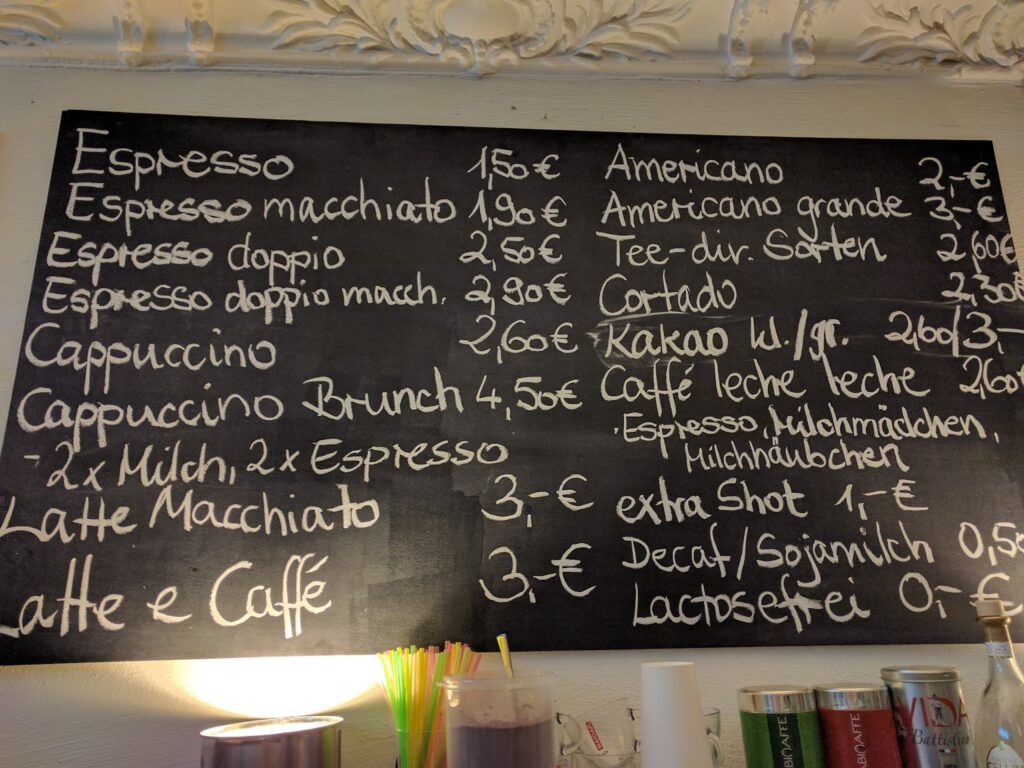 Espresso 1,50€
Espresso macchiato 1,90€
Espresso doppio 2,50€
Espresso doppio macch. 2,90€
Cappuccino 2,60€
Cappuccino Brunch 4,50€
- 2 x Milch, 2 x Espresso
Latte Macchiato 3,-€
Latte e Caffé 3,-€
Americano 2,-€
Americano grande 3,-€
Tee-div. Sorten 2,60€
Cortado 2,30€
Kakao kl./gr. 2,60/3,-
Caffé leche leche 2,60
Espresso, Milchmädchen,
Milchhäubchen
extra Shot 1,-€
Decaf/Sojamilch 0,50
Lactosefrei 0,-€
VIDA
Battista